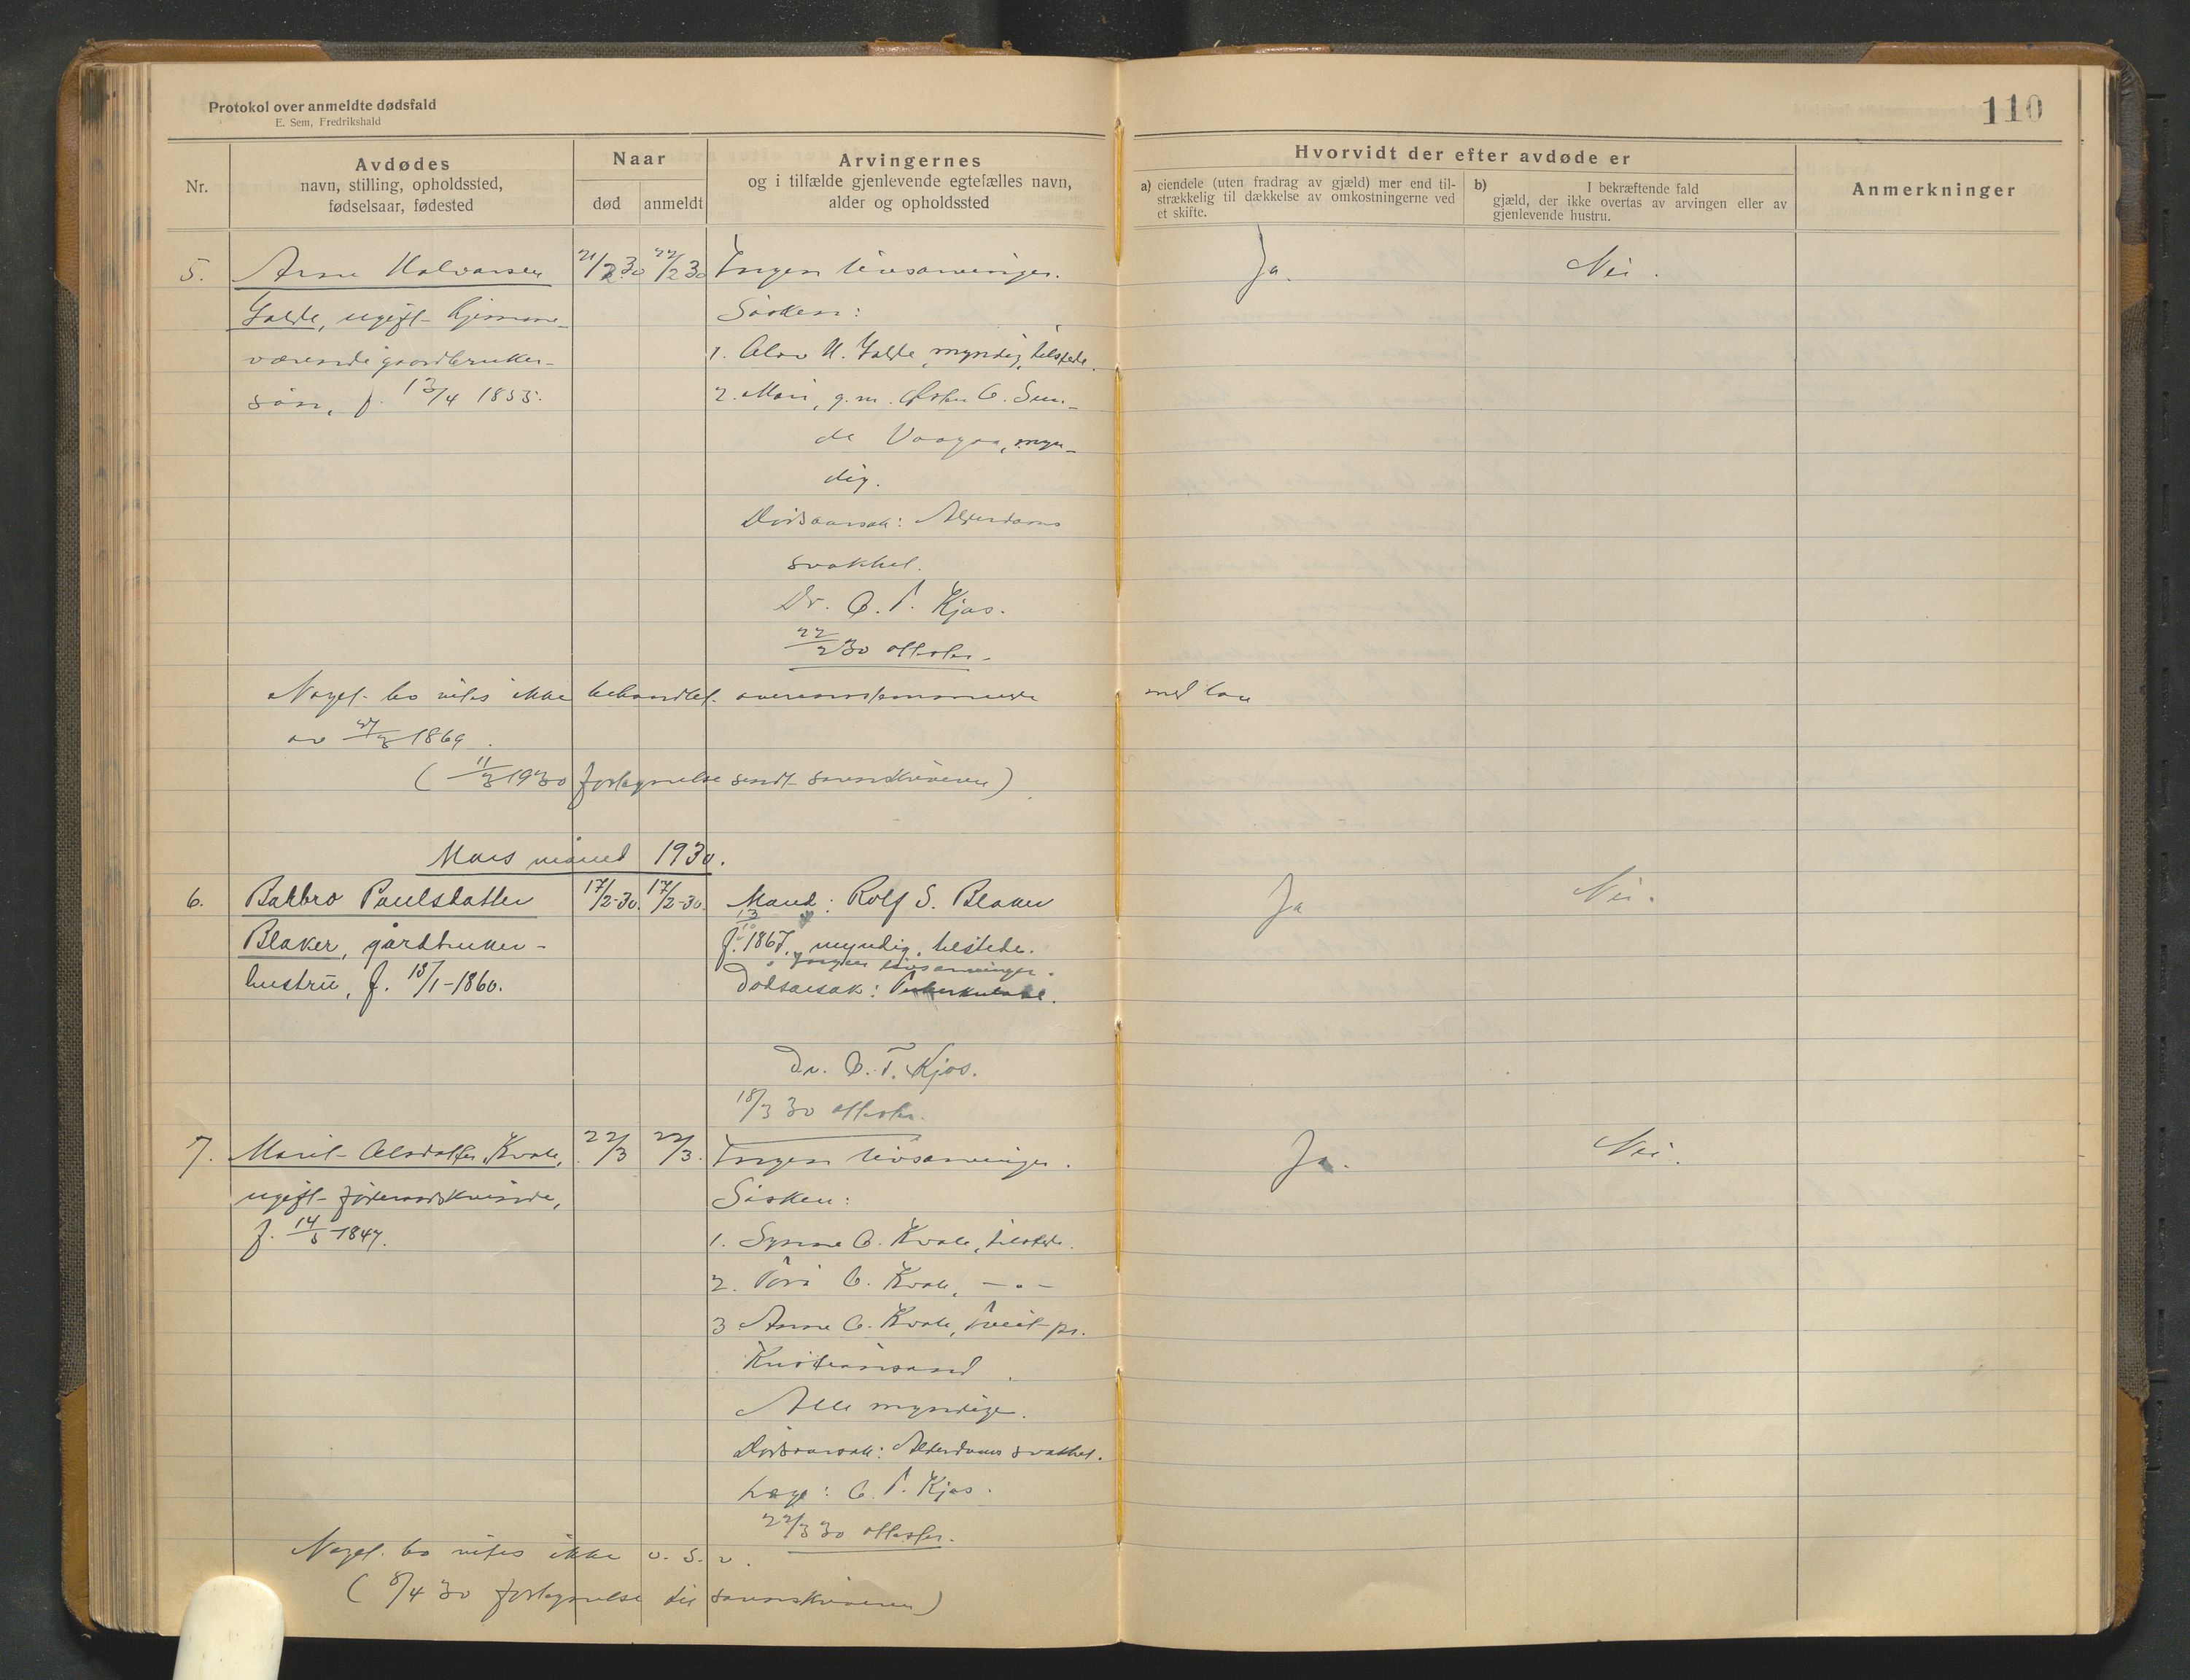 Protokol over anmeldte dødsfald
E. Sem, Fredrikshald
110
Nr.
Avdødes
navn, stilling, opholdssted,
fødselsaar, fødested
Naar
død
anmeldt
Arvingernes
og i tilfælde gjenlevende egtefælles navn,
alder og opholdssted
Hvorvidt der efter avdøde er
a) eiendele (uten fradrag av gjæld) mer end til-
strækkelig til dækkelse av omkostningerne ved
et skifte.
b) I bekræftende fald
gjæld, der ikke overtas av arvingen eller av
gjenlevende hustru.
Anmerkninger
5. Arne Halvorsen 21/2 30 22/2 30 Ingen livsarvinger. Ja. Nei.
Galde, ugift hjemme- Søsken:
værende gaardbruker- 1. Olav H. Galde, myndig, tilstede.
søn, f. 13/4 1855. 2. Mari, g.m. O. Sun-
de Vaagaa, myn-
dig.
Dødsaarsak: Alderdoms
svakhet.
Dr. O. T. Kjos.
22/2 30 attester.
Noget bo vites ikke behandlet overensstemmende med lov
av 27/3 1869.
(11/3 1930 fortegnelse sendt sorenskriveren)
Mars måned 1930.
6. Balbro Paulsdatter 17/2-30. 17/2-30. Mand: Rolf S. Blaker Ja Nei.
Blaker, gårdbruker- f. 13/10 1867, myndig, tilstede.
Ingen livsarvinger.
hustru, f. 18/1-1860. Dødsårsak: Tuberkulose.
Dr. O. T. Kjos.
18/3 30 attester.
7. Marit Olsdatter Kvale, 22/3 22/3. Ingen livsarvinger. Ja. Nei.
ugift føderaadskvinde, Søsken:
f. 14/5 1847. 1. Synne O. Kvale, tilstede.
2. Tori O. Kvale, — " —
3 Anne O. Kvale, Tveit pr.
Kristiansand.
Alle myndige.
Dødsaarsak: Alderdoms svakhet.
Læge: O. T. Kjos.
22/3 30 attester.
Noget bo vites ikke o. s. v.
(8/4 30 fortegnelse til sorenskriveren)